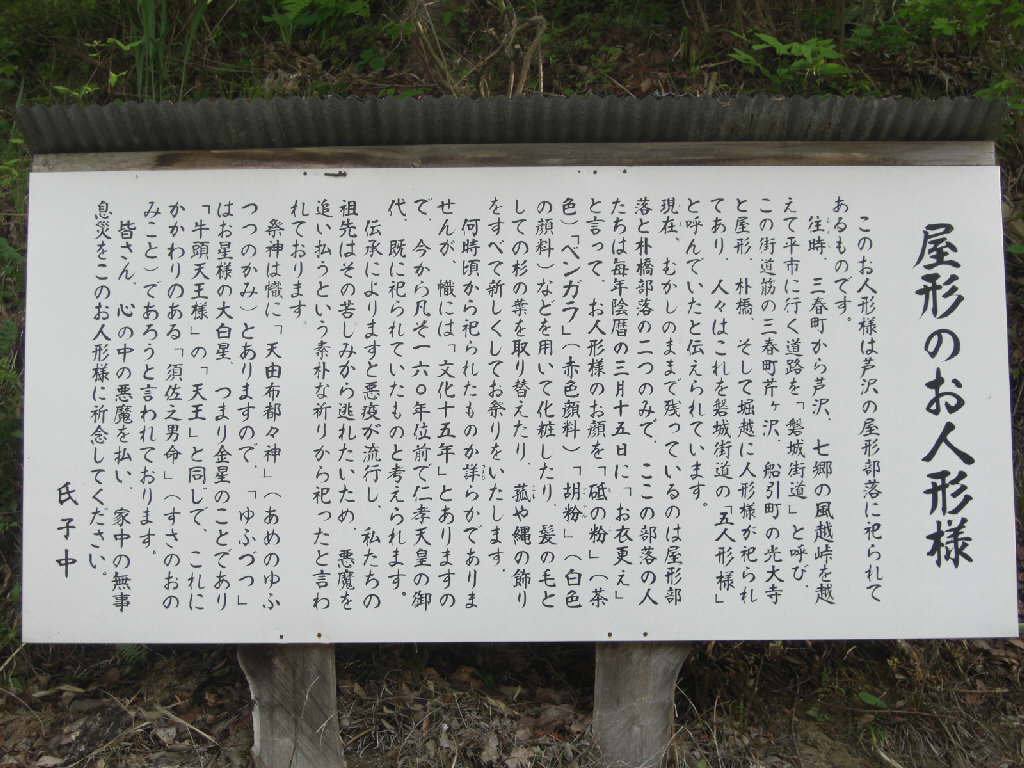 屋形のお人形様
このお人形様は芦沢の屋形部落に祀られて
あるものです。
往時、三春町から芦沢、七郷の風越峠を越
えて平市に行く道路を「磐城街道」と呼び、
この街道筋の三春町芹ヶ沢、船引町の光大寺
と屋形、朴橋、そして堀越に人形様が祀られ
てあり、人々はこれを磐城街道の「五人形様」
と呼んでいたと伝えられています。
現在、むかしのままで残っているのは屋形部
落と朴橋部落の二つのみで、ここの部落の人
たちは毎年陰暦の三月十五日に「お衣更え」
と言って、お人形様のお顔を「砥の粉」(茶
色)「ベンガラ」(赤色顔料)「胡粉」(白色
の顔料)などを用いて化粧したり、髪の毛と
しての杉の葉を取り替えたり、菰や縄の飾り
をすべて新しくしてお祭りをいたします。
何時頃から祀られたものか詳らかでありま
せんが、幟には「文化十五年」とありますの
で、今から凡そ一六〇年位前で仁孝天皇の御
代、既に祀られていたものと考えられます。
伝承によりますと悪疫が流行し、私たちの
祖先はその苦しみから逃れたいため、悪魔を
追い払うという素朴な祈りから祀ったと言わ
れております。
祭神は幟に「天由布都々神」(あめのゆふ
つつのかみ)とありますので、「ゆふづつ」
はお星様の大白星、つまり金星のことであり
「牛頭天王様」の「天王」と同じで、これに
かかわりのある「須佐え男命」(すさのおの
みこと)であろうと言われております。
皆さん、心の中の悪魔を払い、家中の無事
息災をこのお人形様に祈念してください。
氏子中